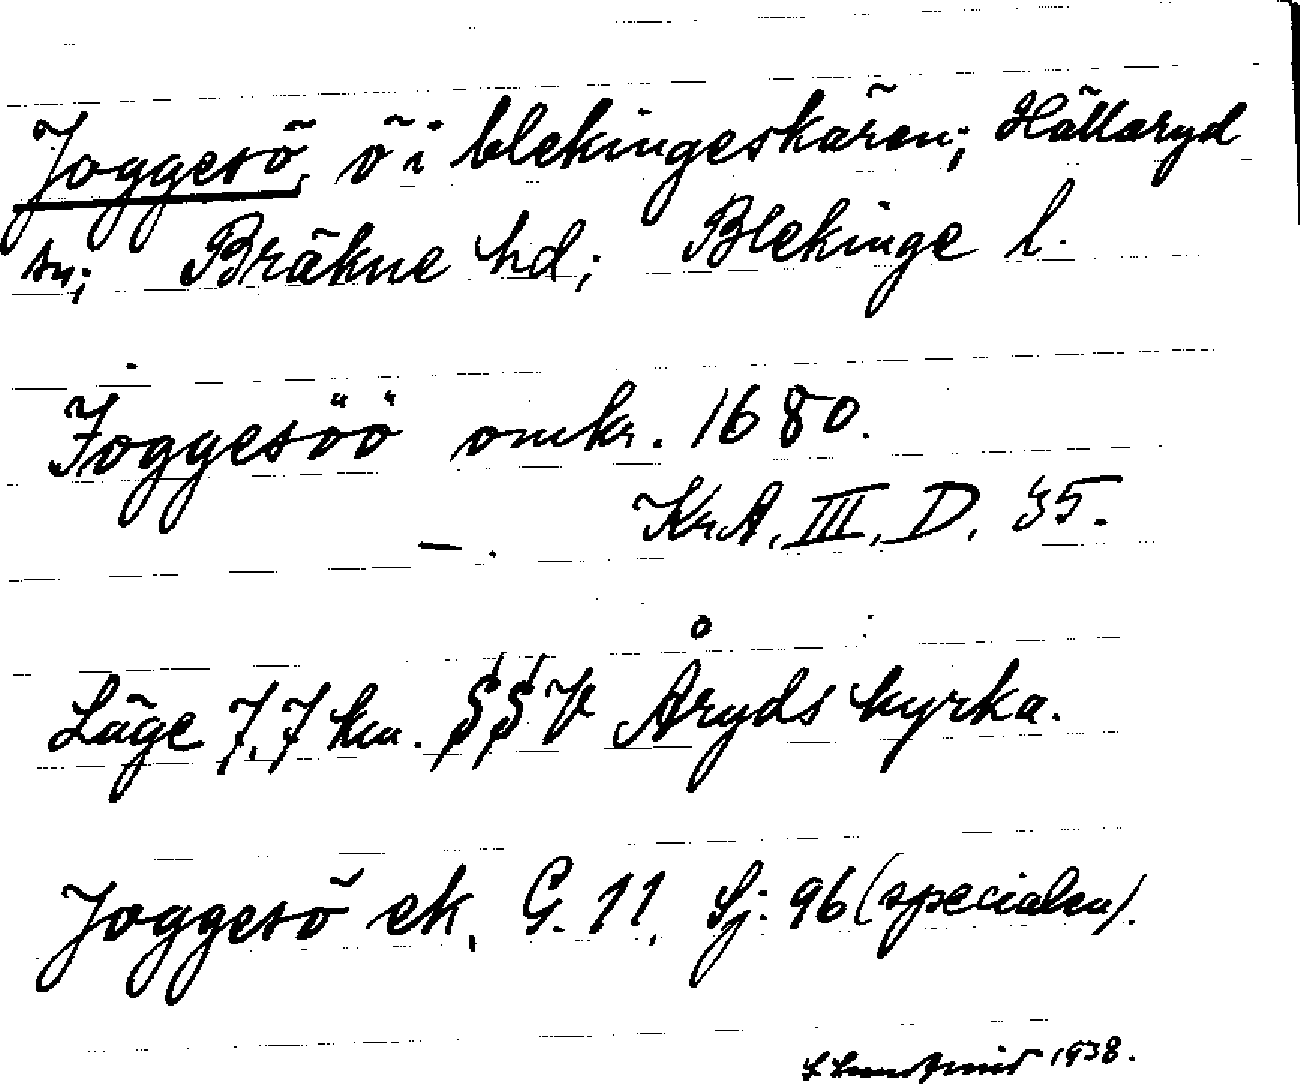 Joggesö, ö i blekingeskären; Hällaryd
sn; Bräkne hd; Blekinge l.
Joggesöö omkr. 1680.
KrA. III. D. 35.
—.
Läge 7,7 km. SSV Åryds kyrka.
Joggesö ek. G. 11, Sj. 96 (specialen).
1938.